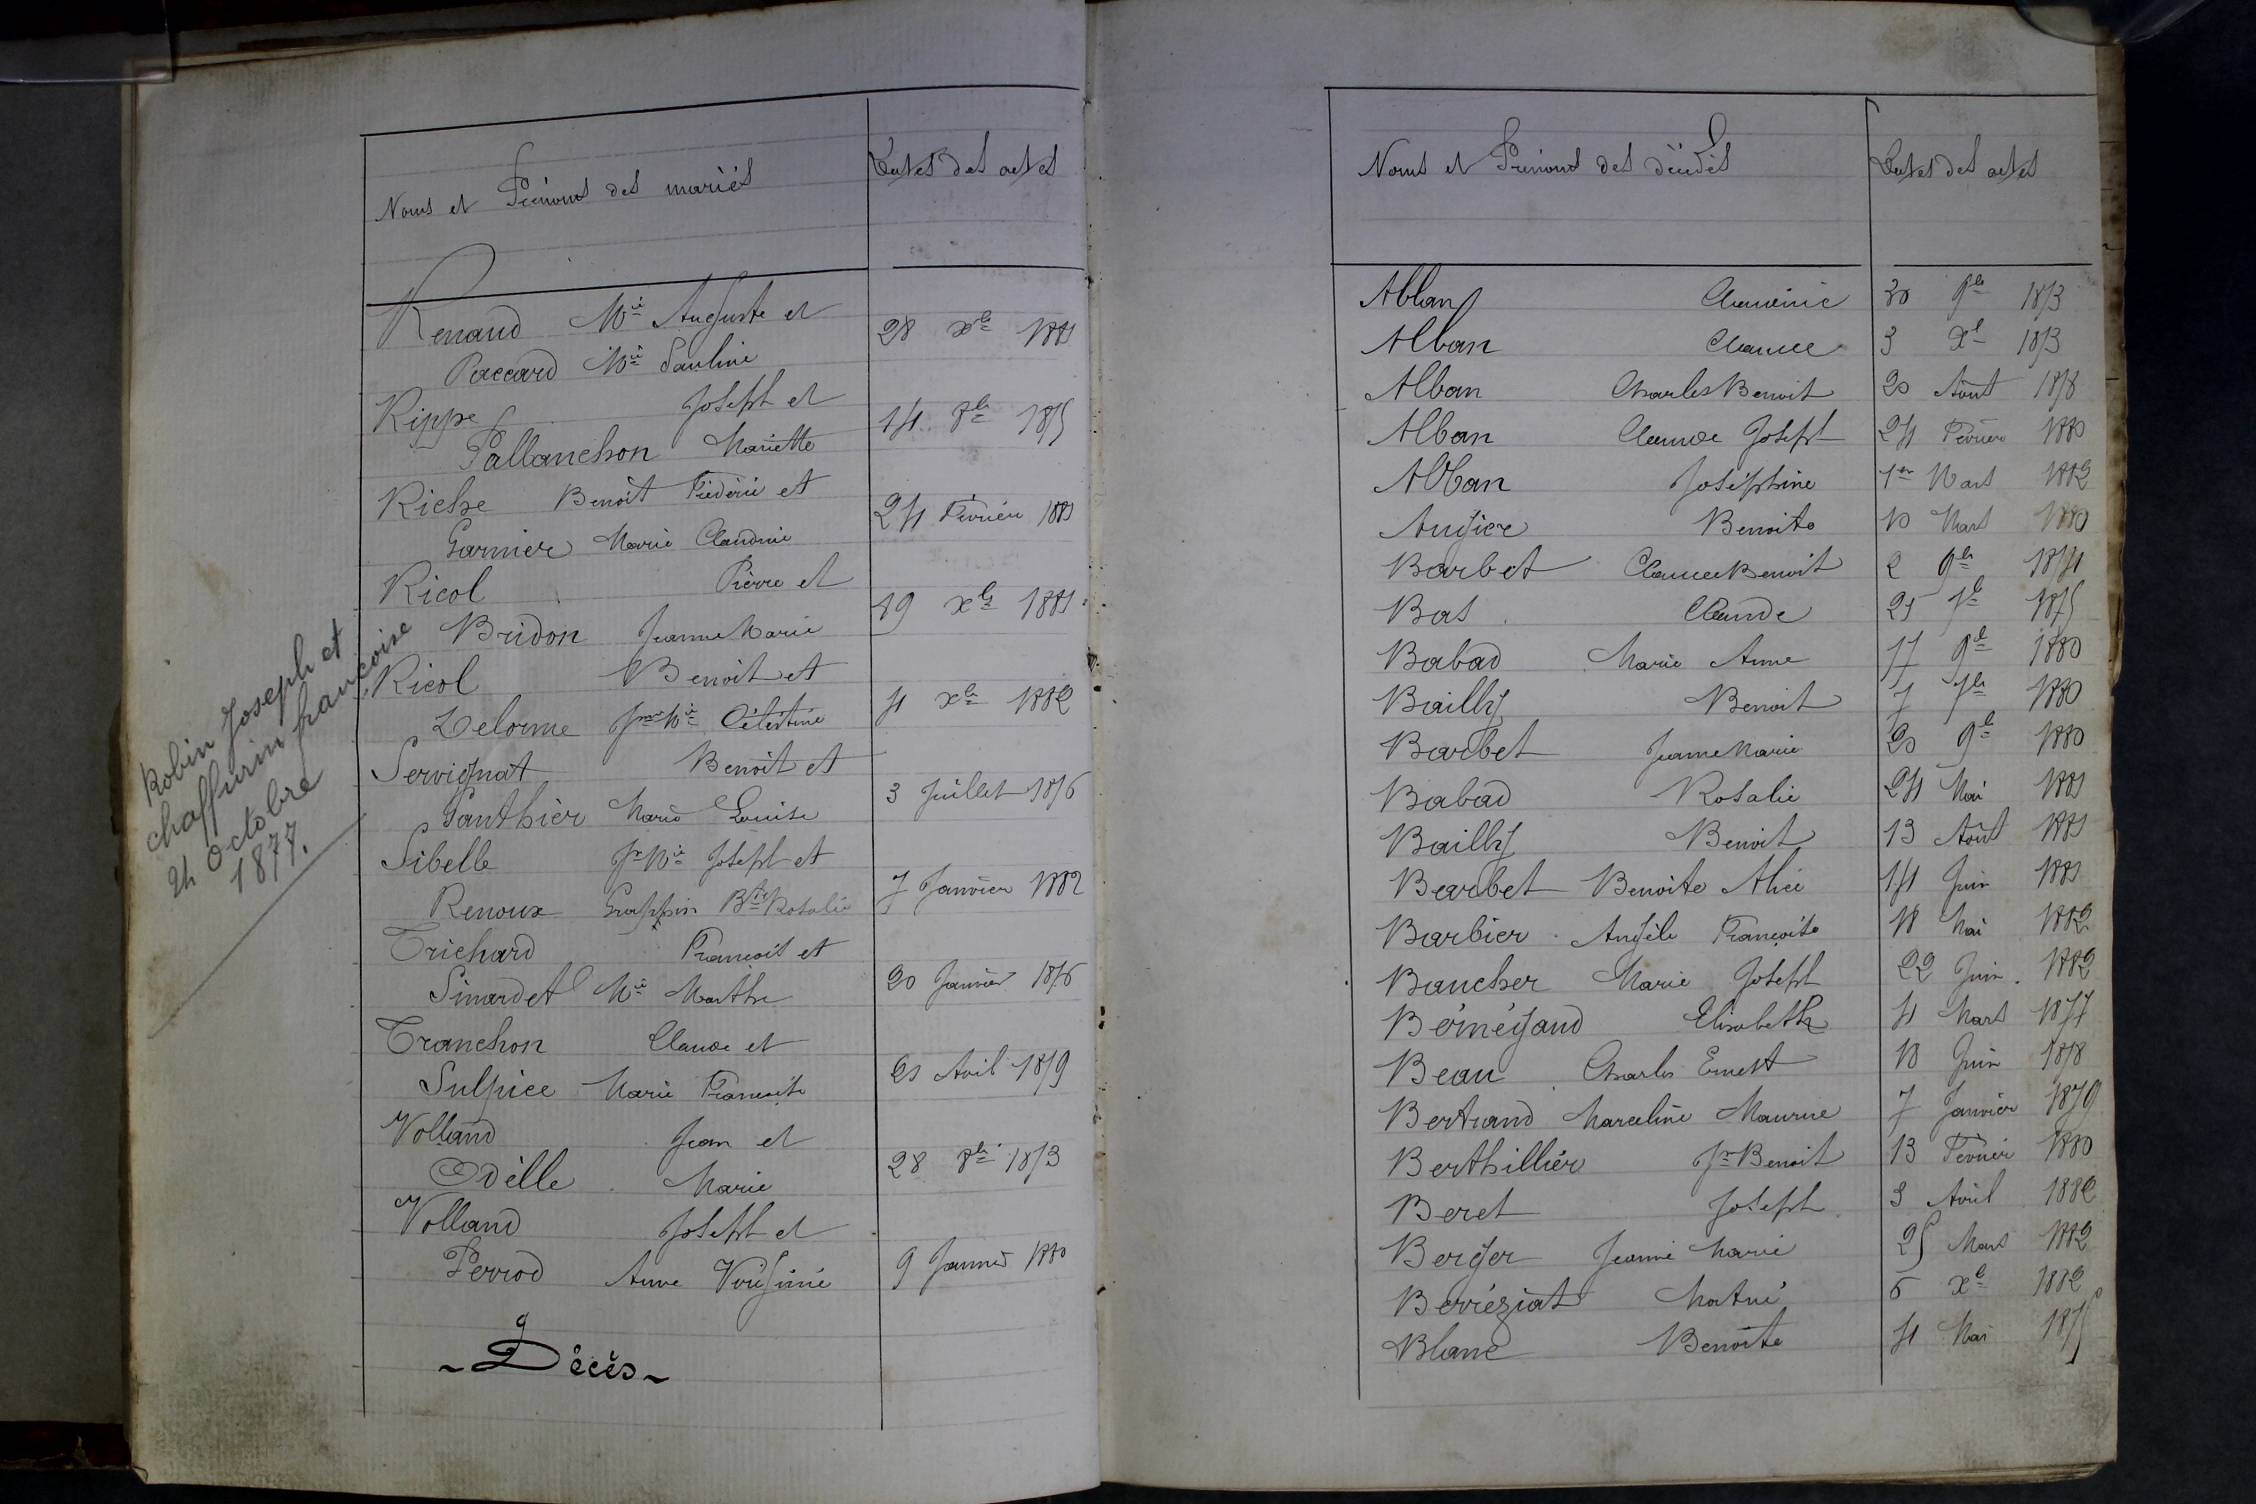 Noms et Prénoms des mariés
Dates des actes
Renaud Mie Auguste et
Paccard Mie Pauline
28 xbre 1881
Rippe Joseph et
Pallanchon Mariette
14 8bre 1875
Riche Benoît Frédéric et
Garnier Marie Claudine
24 Février 1881
Ricol Pierre et
Bridon Jeanne Marie
19 xbre 1881
Ricol Benoit et
Delorme Jne Mie Célestine
4 xbre 1882
Servignat Benoît et
Ganthier Marie Louise
3 Juillet 1876
Sibelle Jn Mie Joseph et
Renoux Grappin Bte Rosalie
7 Janvier 1882
Trichard François et
Sinardet Mie Marthe
20 Janvier 1876
Tranchon Claude et
Sulpice Marie Françoise
21 Avril 1879
Volland Jean et
Odèlle Marie
28 8bre 1873
Volland Joseph et
Perrod Anne Virginie
9 Janvier 1880
Robin Joseph et
chaffurin françoise
24 Octobre
1877.
~ Décès ~
Noms et Prénoms des décédés
Dates des actes
Alban 30 9bre 1873
Alban 3 Xbre 1873
Alban Charles Benoit 20 Août 1878
Alban Claude Joseph 24 Février 1880
Alban Joséphine 1er Mars 1882
Augier Benoite 10 Mars 1880
Barbet Claude Benoit 2 9bre 1874
Bas Claude 25 7bre 1875
Babad Marie Anne 17 9bre 1880
Bailly Benoit 7 7bre 1880
Barbet Jeanne Marie 20 9bre 1880
Babad Rosalie 24 Mai 1881
Bailly Benoit 13 Août 1881
Barbet Benoite Alice 14 Juin 1881
Barbier Angèle Françoise 18 Mai 1882
Baucher Marie Joseph 22 Juin 1882
Bérnégaud Elisabeth 4 Mars 1877
Beau Charles Ernest 18 Juin 1878
Bertrand Marceline Maurice 7 Janvier 1879
Berthillier Jn Benoit 13 Février 1880
Beret Joseph 3 Avril 1882
Berger Jeanne Marie 25 Mars 1882
Berréziat 6 xbre 1882
Blanc Benoîte 4 Mai 1875